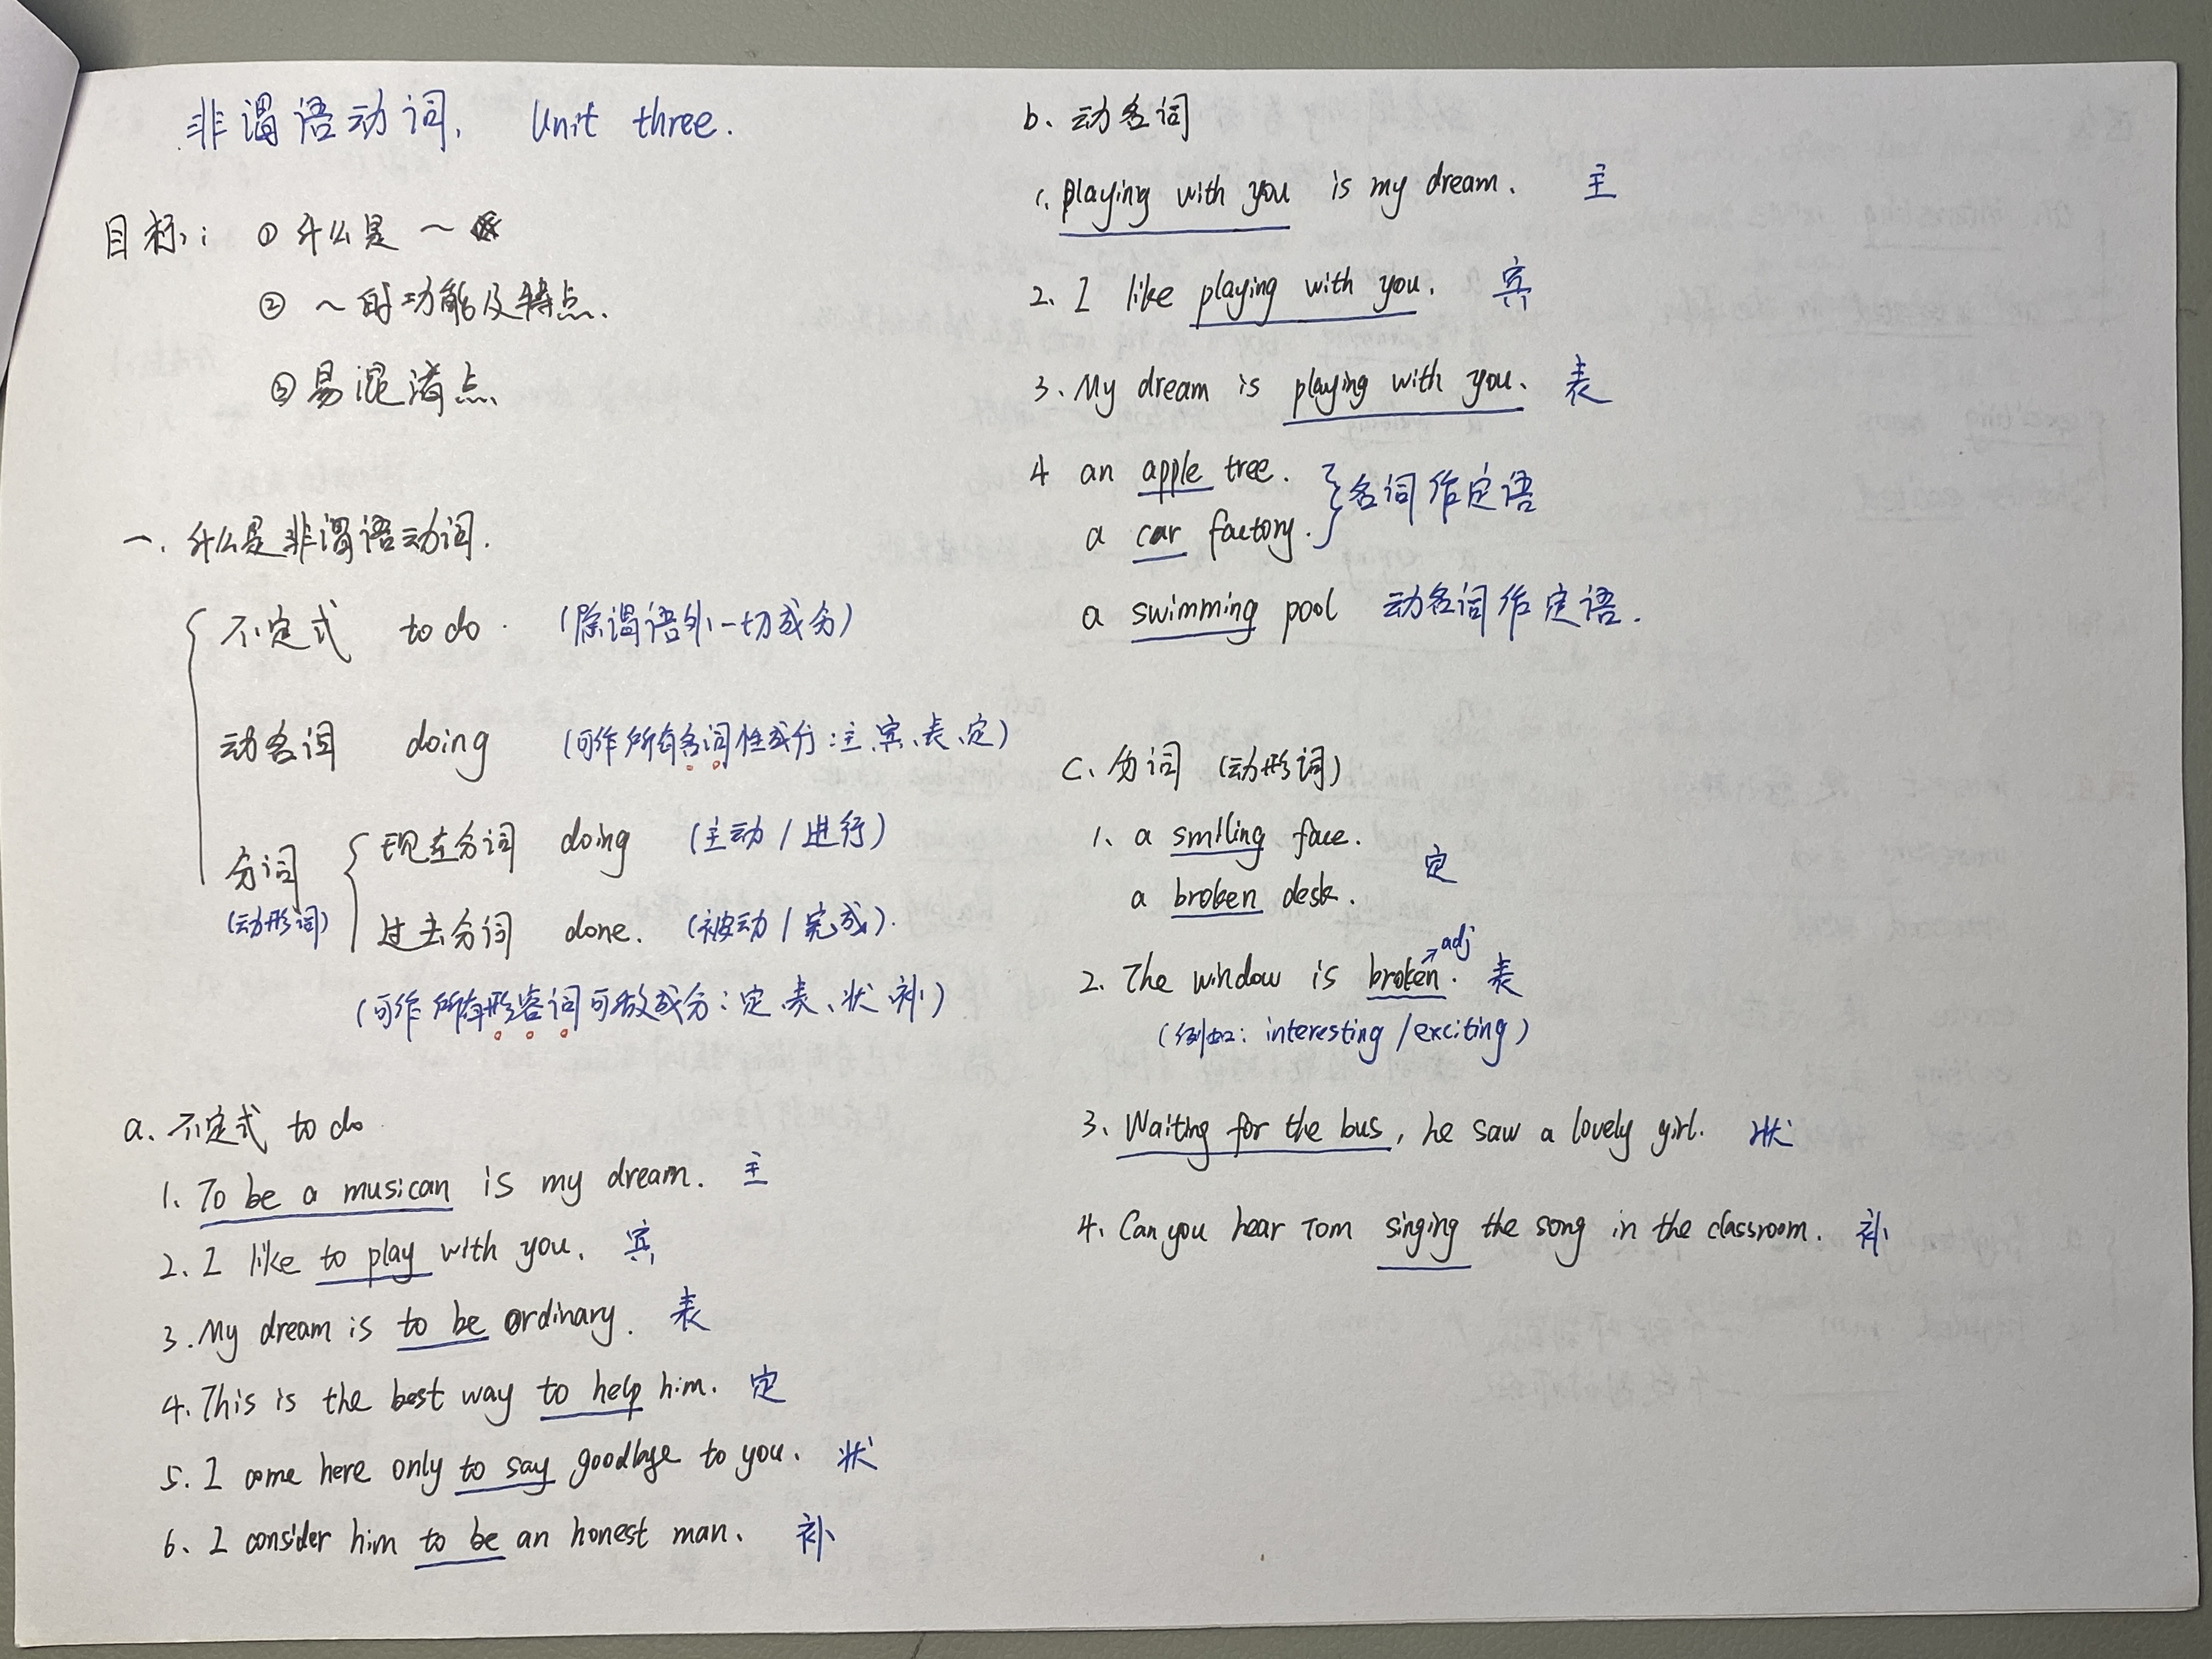 非谓语动词. Unit three.
目标: ① 什么是 ~
② ~的功能及特点.
③ 易混淆点.
一. 什么是非谓语动词.
不定式 to do. (除谓语外一切成分)
动名词 doing (可作所有名词性成分:主、宾、表、定)
分词 (动形词)
现在分词 doing (主动/进行)
过去分词 done. (被动/完成).
(可作所有形容词可做成分:定、表、状、补)
a. 不定式 to do
1. To be a musican is my dream. 主
2. I like to play with you. 宾
3. My dream is to be ordinary. 表
4. This is the best way to help him. 定
5. I come here only to say goodbye to you. 状
6. I consider him to be an honest man. 补
b. 动名词
1. playing with you is my dream. 主
2. I like playing with you. 宾
3. My dream is playing with you. 表
4 an apple tree.
a car factory. }名词作定语
a swimming pool 动名词作定语.
c. 分词 (动形词)
1. a smiling face.
a broken desk. 定
2. The window is broken. →adj 表
(例如: interesting / exciting)
3. Waiting for the bus, he saw a lovely girl. 状
4. Can you hear Tom singing the song in the classroom. 补